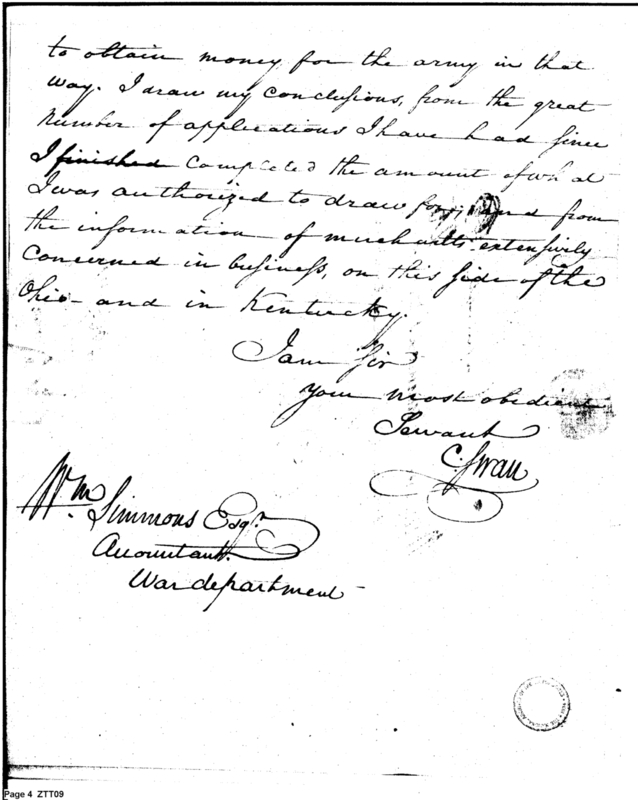 to obtain money for the army in that
way. I draw my conclusions, from the great
number of applications I have had since
I finished completed the amount of what
I was authorized to draw for, and from
the information of merchants extensively
concerned in business, on this side of the
Ohio and in Kentucky.
I am Sir
your most obedient
Servant
C. Swan
Wm. Simmons Esqr.
Accountant.
War department
Page 4 ZTT09